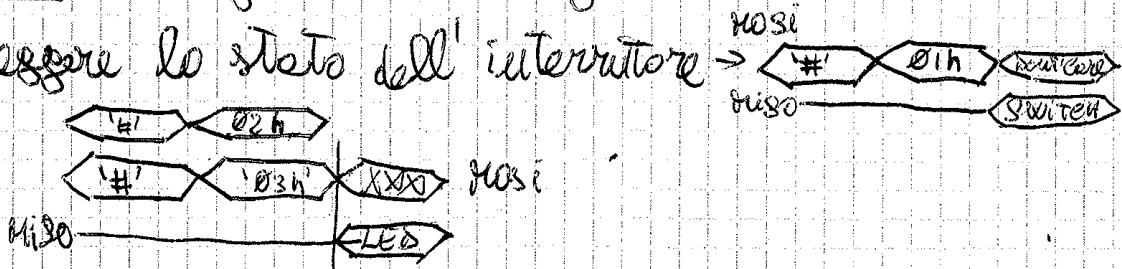 MOSI
leggere lo stato dell'interruttore → '#' 01h DON'T CARE
MISO SWITCH
'#' 02h
'#' '03h' XXX MOSI
MISO LED